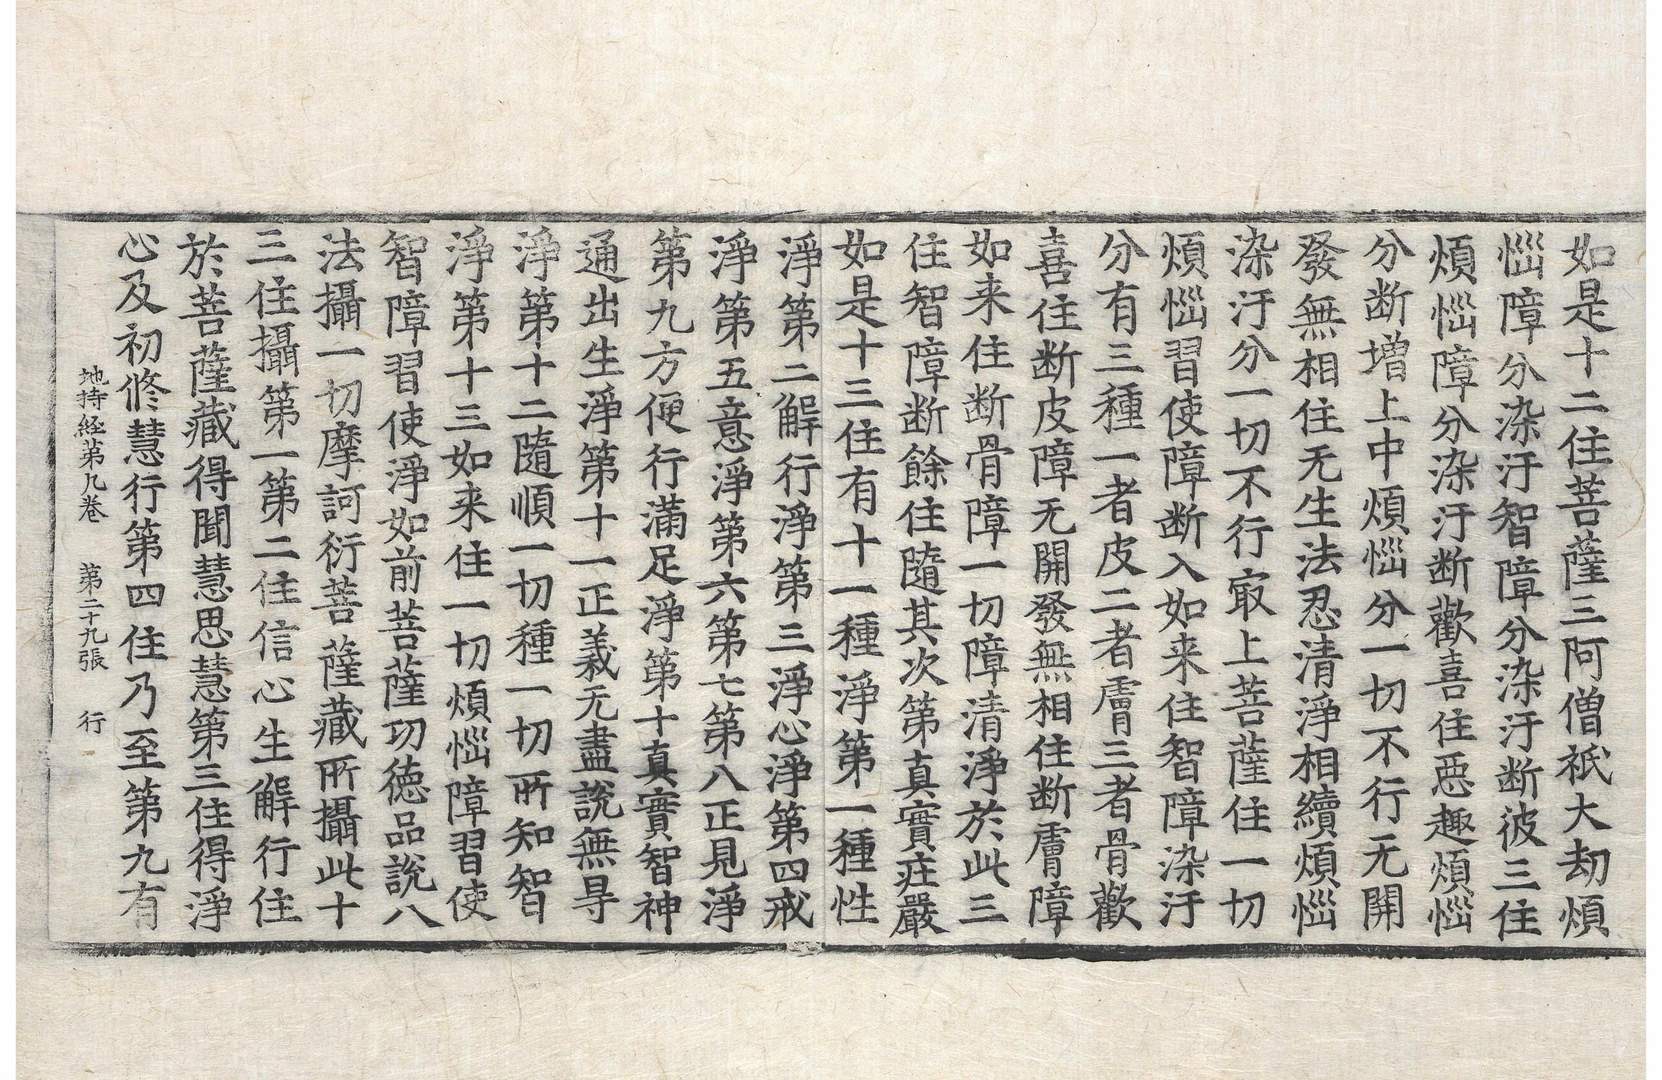 如是十二住菩薩三阿僧祇大劫煩
惱障分染汙智障分染汙断彼三住
煩惱障分染汙断歡喜住惡趣煩惱
分断增上中煩惱分一切不行无開
發無相住无生法忍清淨相續煩惱
染汙分一切不行㝡上菩薩住一切
煩惱習使障断入如来住智障染汙
分有三種一者皮二者膚三者骨歡
喜住断皮障无開發無相住断膚障
如来住断骨障一切障清淨於此三
住智障断餘住隨其次第真實疘嚴
如是十三住有十一種淨第一種性
淨第二解行淨第三淨心淨第四戒
淨第五意淨第六第七第八正見淨
第九方便行滿足淨第十真實智神
通出生淨第十一正義无盡說無㝵
淨第十二隨順一切種一切所知智
淨第十三如来住一切煩惱障習使
智障習使淨如前菩薩功德品說八
法攝一切摩訶衍菩薩藏所攝此十
三住攝第一第二住信心生解行住
於菩薩藏得聞慧思慧第三住得淨
心及初修慧行第四住乃至第九有
地持経第九卷　第二十九張　行